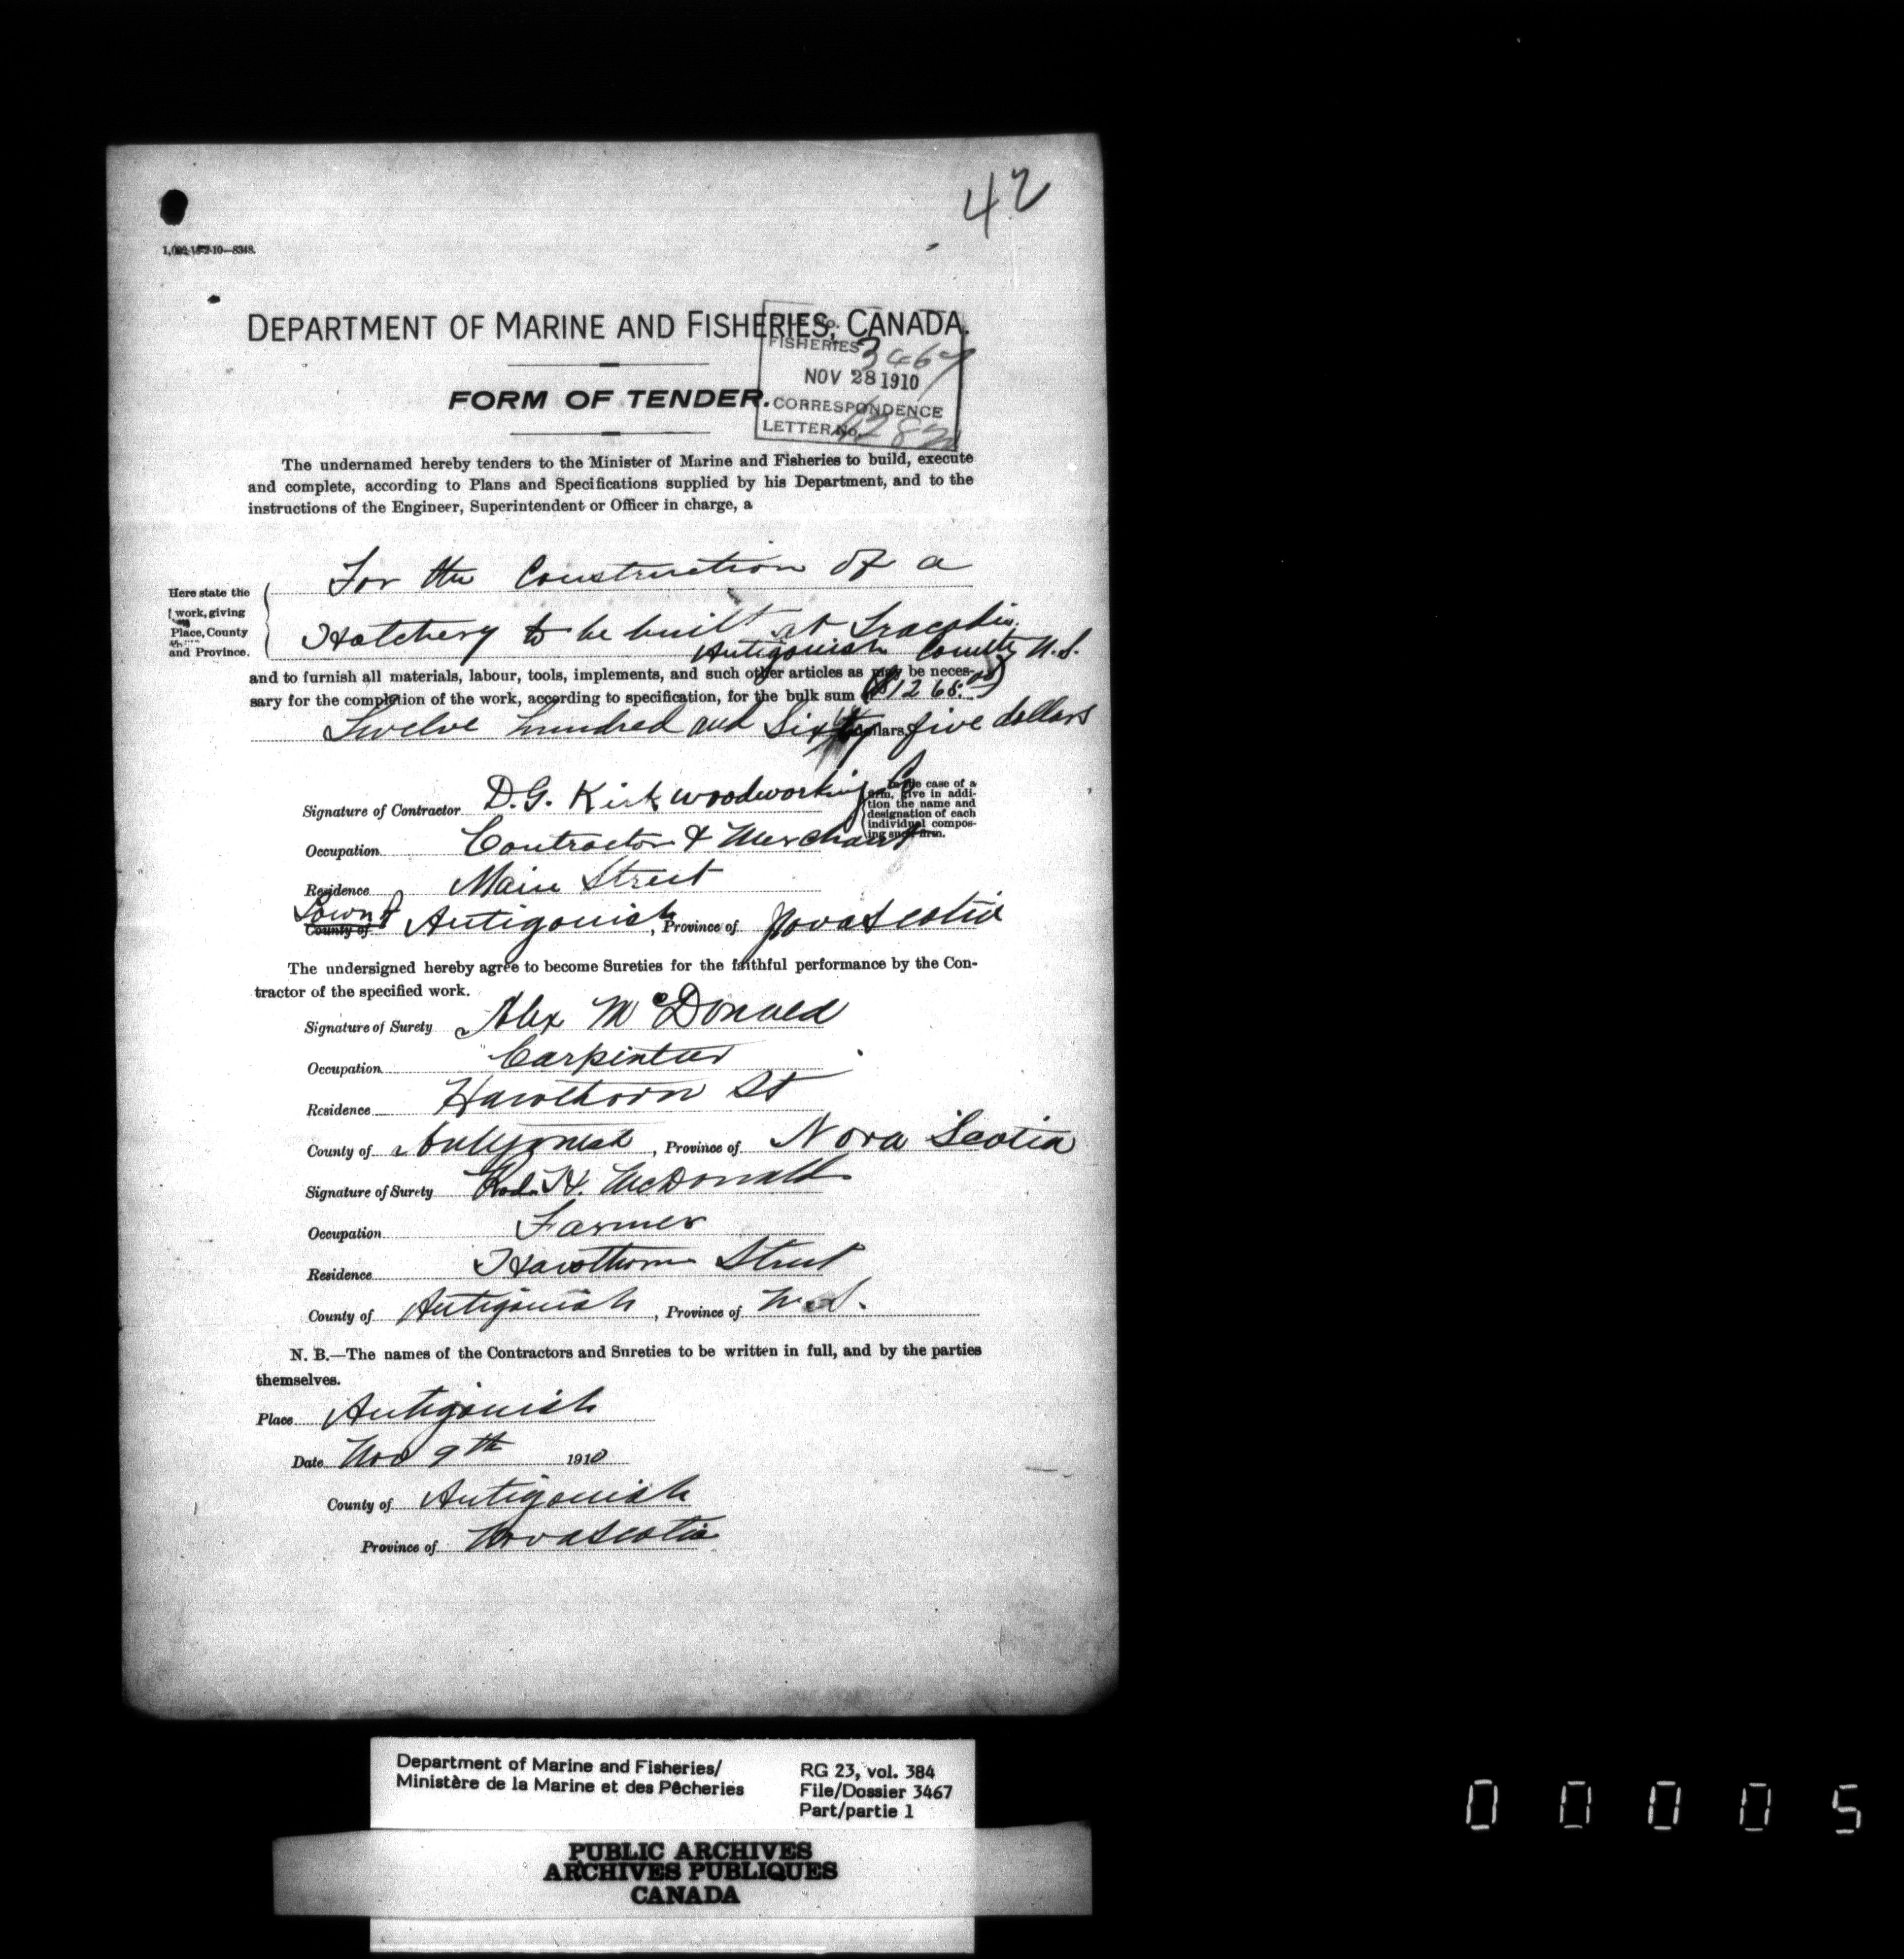 42
DEPARTMENT OF MARINE AND FISHERIES, CANADA.
FISHERIES 3467
NOV 28 1910
FORM OF TENDER.
CORRESPONDENCE
LETTER No.
The undernamed hereby tenders to the Minister of Marine and Fisheries to build, execute
and complete, according to Plans and Specifications supplied by his Department, and to the
instructions of the Engineer, Superintendent or Officer in charge, a
For the Construction of a
Here state the
work, giving
Place, County
and Province.
Hatchery to be built at Tracadie
Antigonish County N.S.
and to furnish all materials, labour, tools, implements, and such other articles as may be neces-
sary for the completion of the work, according to specification, for the bulk sum of ($1265.00)
Twelve hundred and Sixty five dollars
dollars.
Signature of Contractor D.G. Kirk woodworking Co
In the case of a
firm, give in addi-
tion the name and
designation of each
individual compos-
ing such firm.
Occupation Contractor & Merchant
Residence Main Street
Town of
County of Antigonish, Province of Nova Scotia
The undersigned hereby agree to become Sureties for the faithful performance by the Con-
tractor of the specified work.
Signature of Surety Alex McDonald
Occupation Carpinter
Residence Hawthorn St
County of Antigonish, Province of Nova Scotia
Signature of Surety Rod. H. McDonald
Occupation Farmer
Residence Hawthorn Street
County of Antigonish, Province of N.S.
N. B.—The names of the Contractors and Sureties to be written in full, and by the parties
themselves.
Place Antigonish
Date Nov 9th 1910
County of Antigonish
Province of Nova Scotia
Department of Marine and Fisheries/
Ministère de la Marine et des Pêcheries
RG 23, vol. 384
File/Dossier 3467
Part/partie 1
PUBLIC ARCHIVES
ARCHIVES PUBLIQUES
CANADA
00005